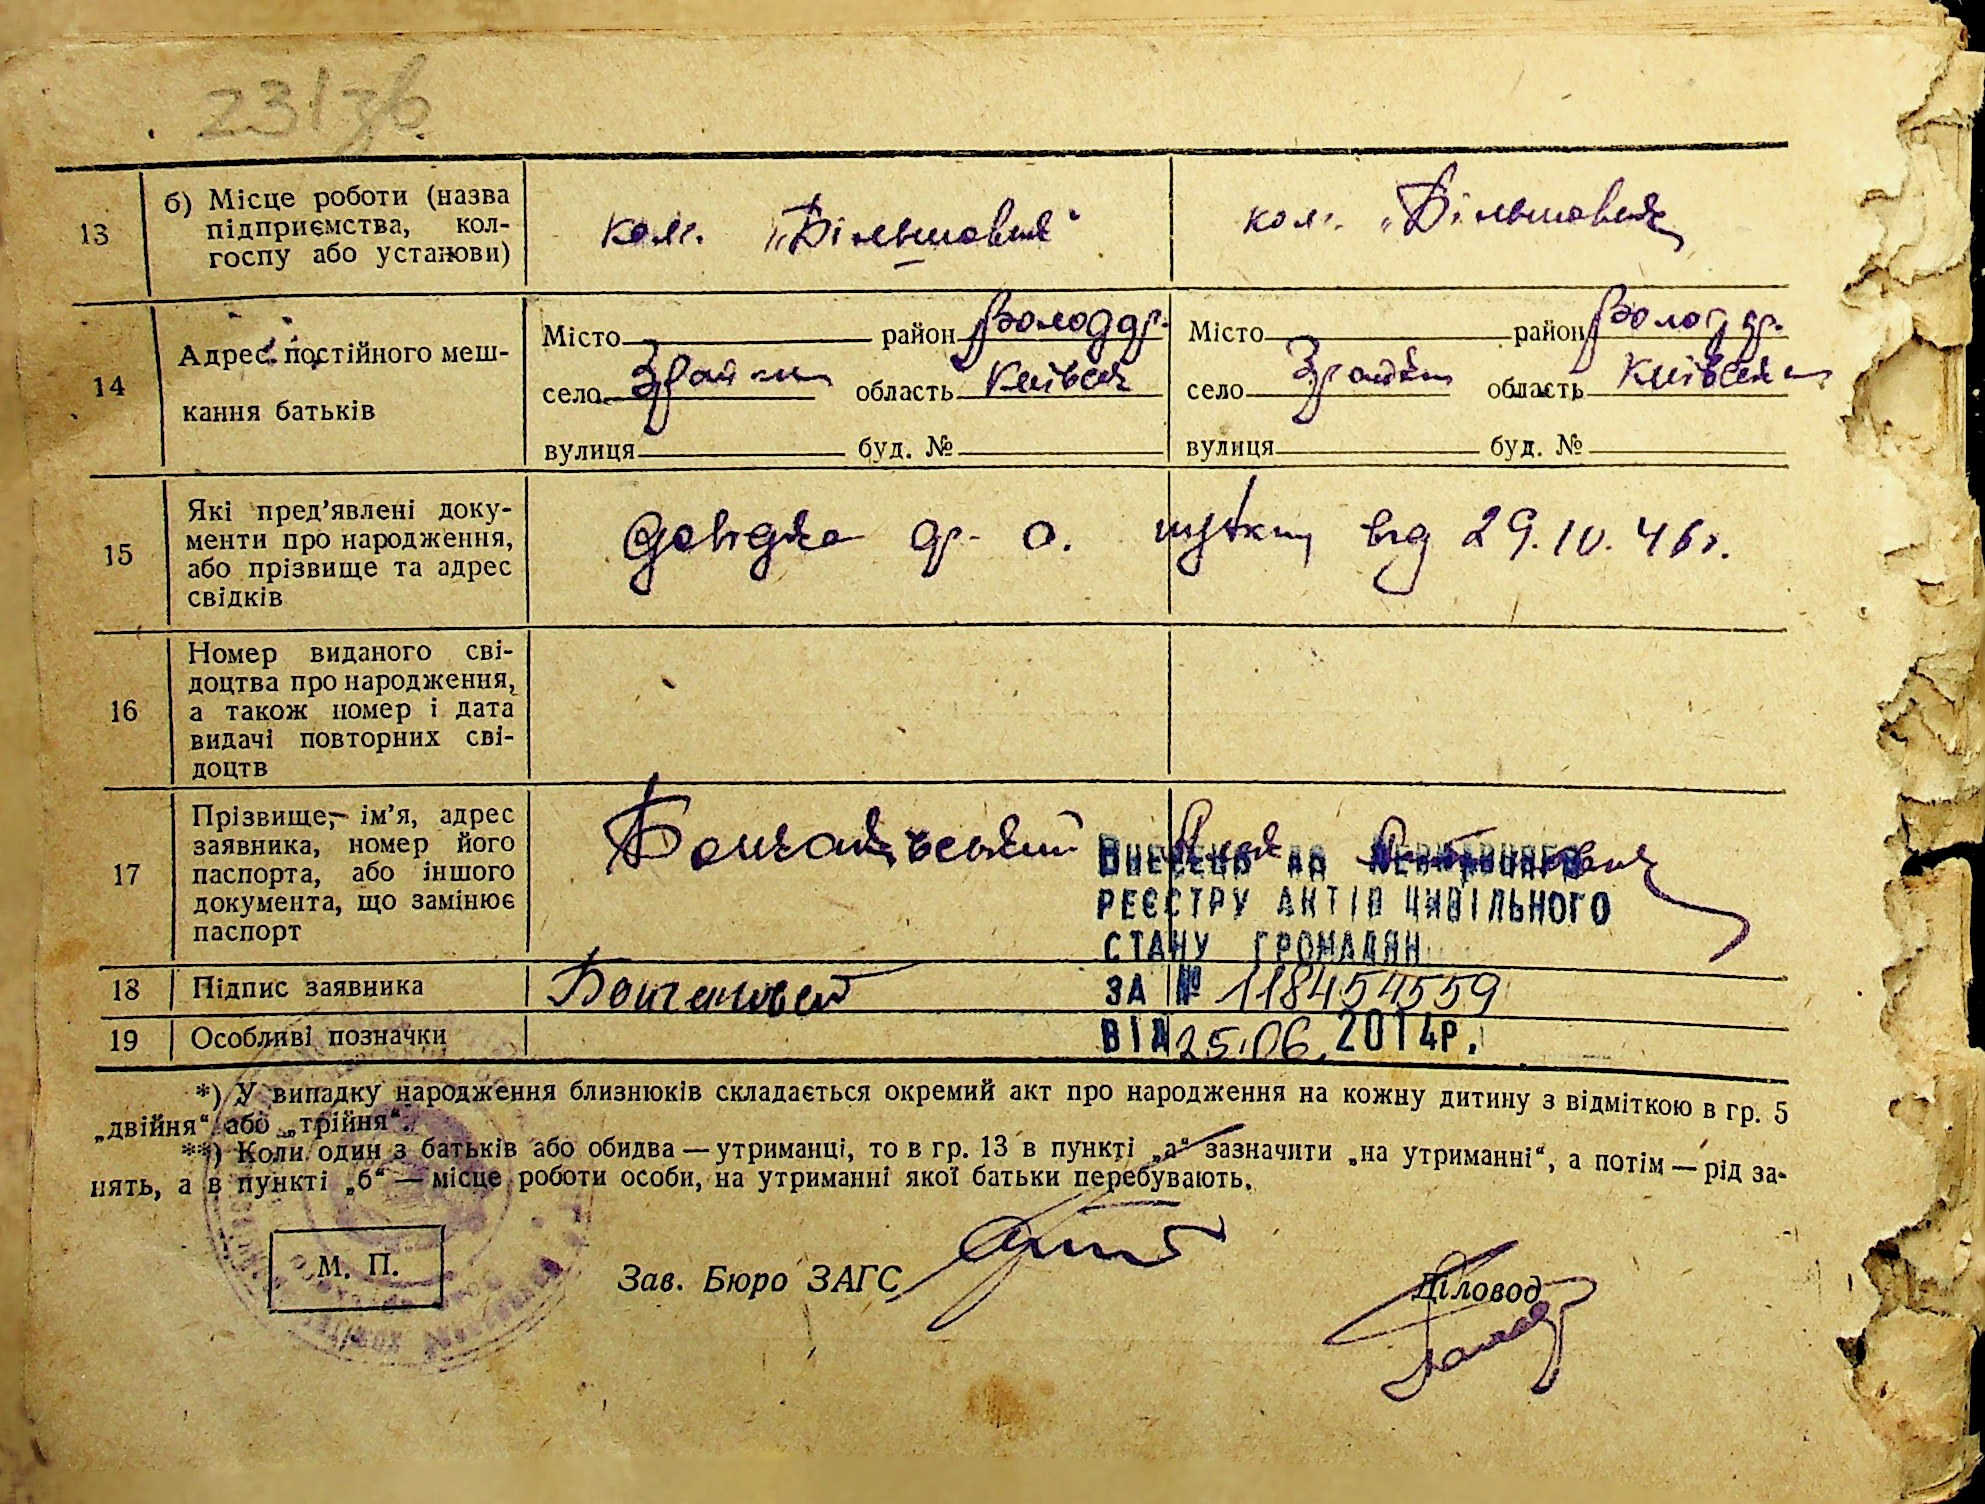 231зв
13
б) Місце роботи (назва
підприємства, кол-
госпу або установи)
кол. „Більшовик"
кол. „Більшовик
14
Адрес постійного меш-
кання батьків
Місто район Володар.
село область Київськ
вулиця буд. №
Місто район Волод др.
село область Київська
вулиця буд. №
15
Які пред'явлені доку-
менти про народження,
або прізвище та адрес
свідків
довідка др. о. від 29.IV.46 г.
16
Номер виданого сві-
доцтва про народження,
а також номер і дата
видачі повторних сві-
доцтв
17
Прізвище, ім'я, адрес
заявника, номер його
паспорта, або іншого
документа, що замінює
паспорт
Внесено до Державного
реєстру актів цивільного
стану громадян
за № 118454559
від 25.06.2014р.
18
Підпис заявника
19
Особливі позначки
*) У випадку народження близнюків складається окремий акт про народження на кожну дитину з відміткою в гр. 5
„двійня“ або „трійня“.
**) Коли один з батьків або обидва — утриманці, то в гр. 13 в пункті „а“ зазначити „на утриманні“, а потім — рід за-
нять, а в пункті „б“ — місце роботи особи, на утриманні якої батьки перебувають.
М. П.
Зав. Бюро ЗАГС
Діловод